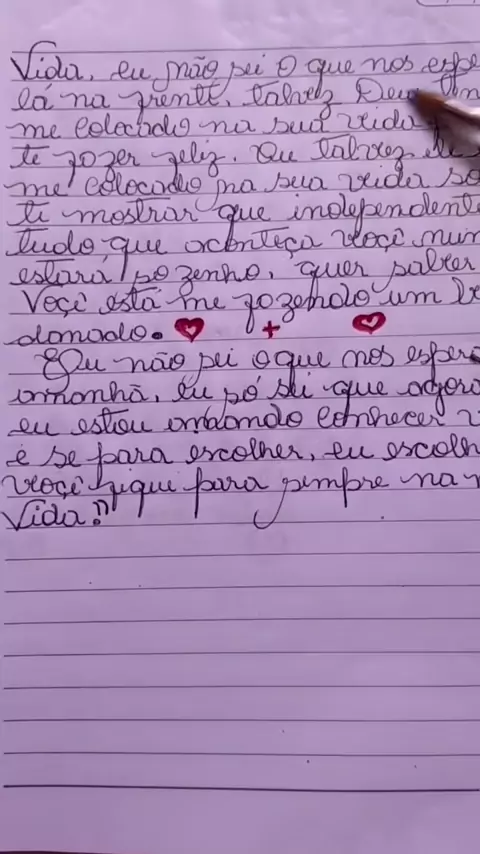 Vida, eu não sei o que nos espe
lá na frente, talvez Deus
me colocado na sua vida
te fazer feliz. Ou talvez
me colocado na sua vida so
ti mostrar que independente
tudo que aconteça você nun
estará sozenho, quer saber
Você está me fazendo um
domado. ❤ + ❤
Eu não sei o que nos esper
ammanhã, eu só sei que agora
eu estou amando conhecer v
e se para escolher, eu escolh
você fique para sempre na m
Vida!!